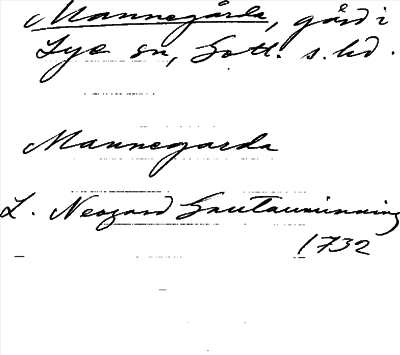 Mannegårda, gård i
Lye sn, Gotl. s. hd.
Mannegarda
L. Neogard Gautauminning
1732